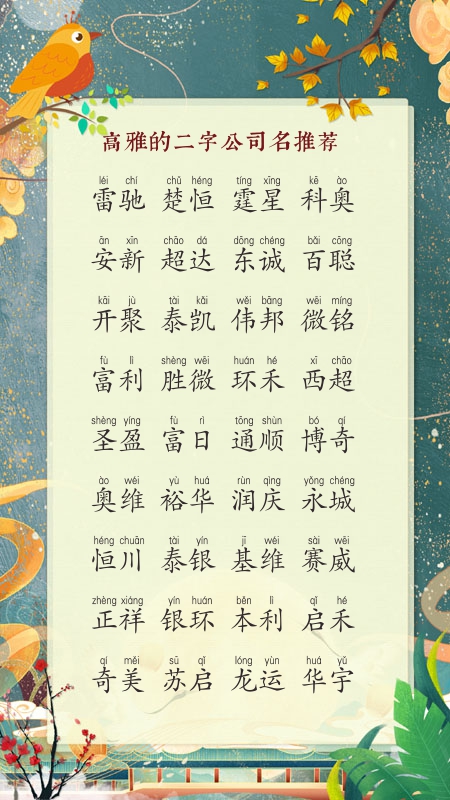 高雅的二字公司名推荐
léi chí chǔ héng tíng xīng kē ào
雷驰 楚恒 霆星 科奥
ān xīn chāo dá dōng chéng bǎi cōng
安新 超达 东诚 百聪
kāi jù tài kǎi wěi bāng wēi míng
开聚 泰凯 伟邦 微铭
fù lì shèng wēi huán hé xī chāo
富利 胜微 环禾 西超
shèng yíng fù rì tōng shùn bó qí
圣盈 富日 通顺 博奇
ào wéi yù huá rùn qìng yǒng chéng
奥维 裕华 润庆 永城
héng chuān tài yín jī wéi sài wēi
恒川 泰银 基维 赛威
zhèng xiáng yín huán běn lì qǐ hé
正祥 银环 本利 启禾
qí měi sū qǐ lóng yùn huá yǔ
奇美 苏启 龙运 华宇